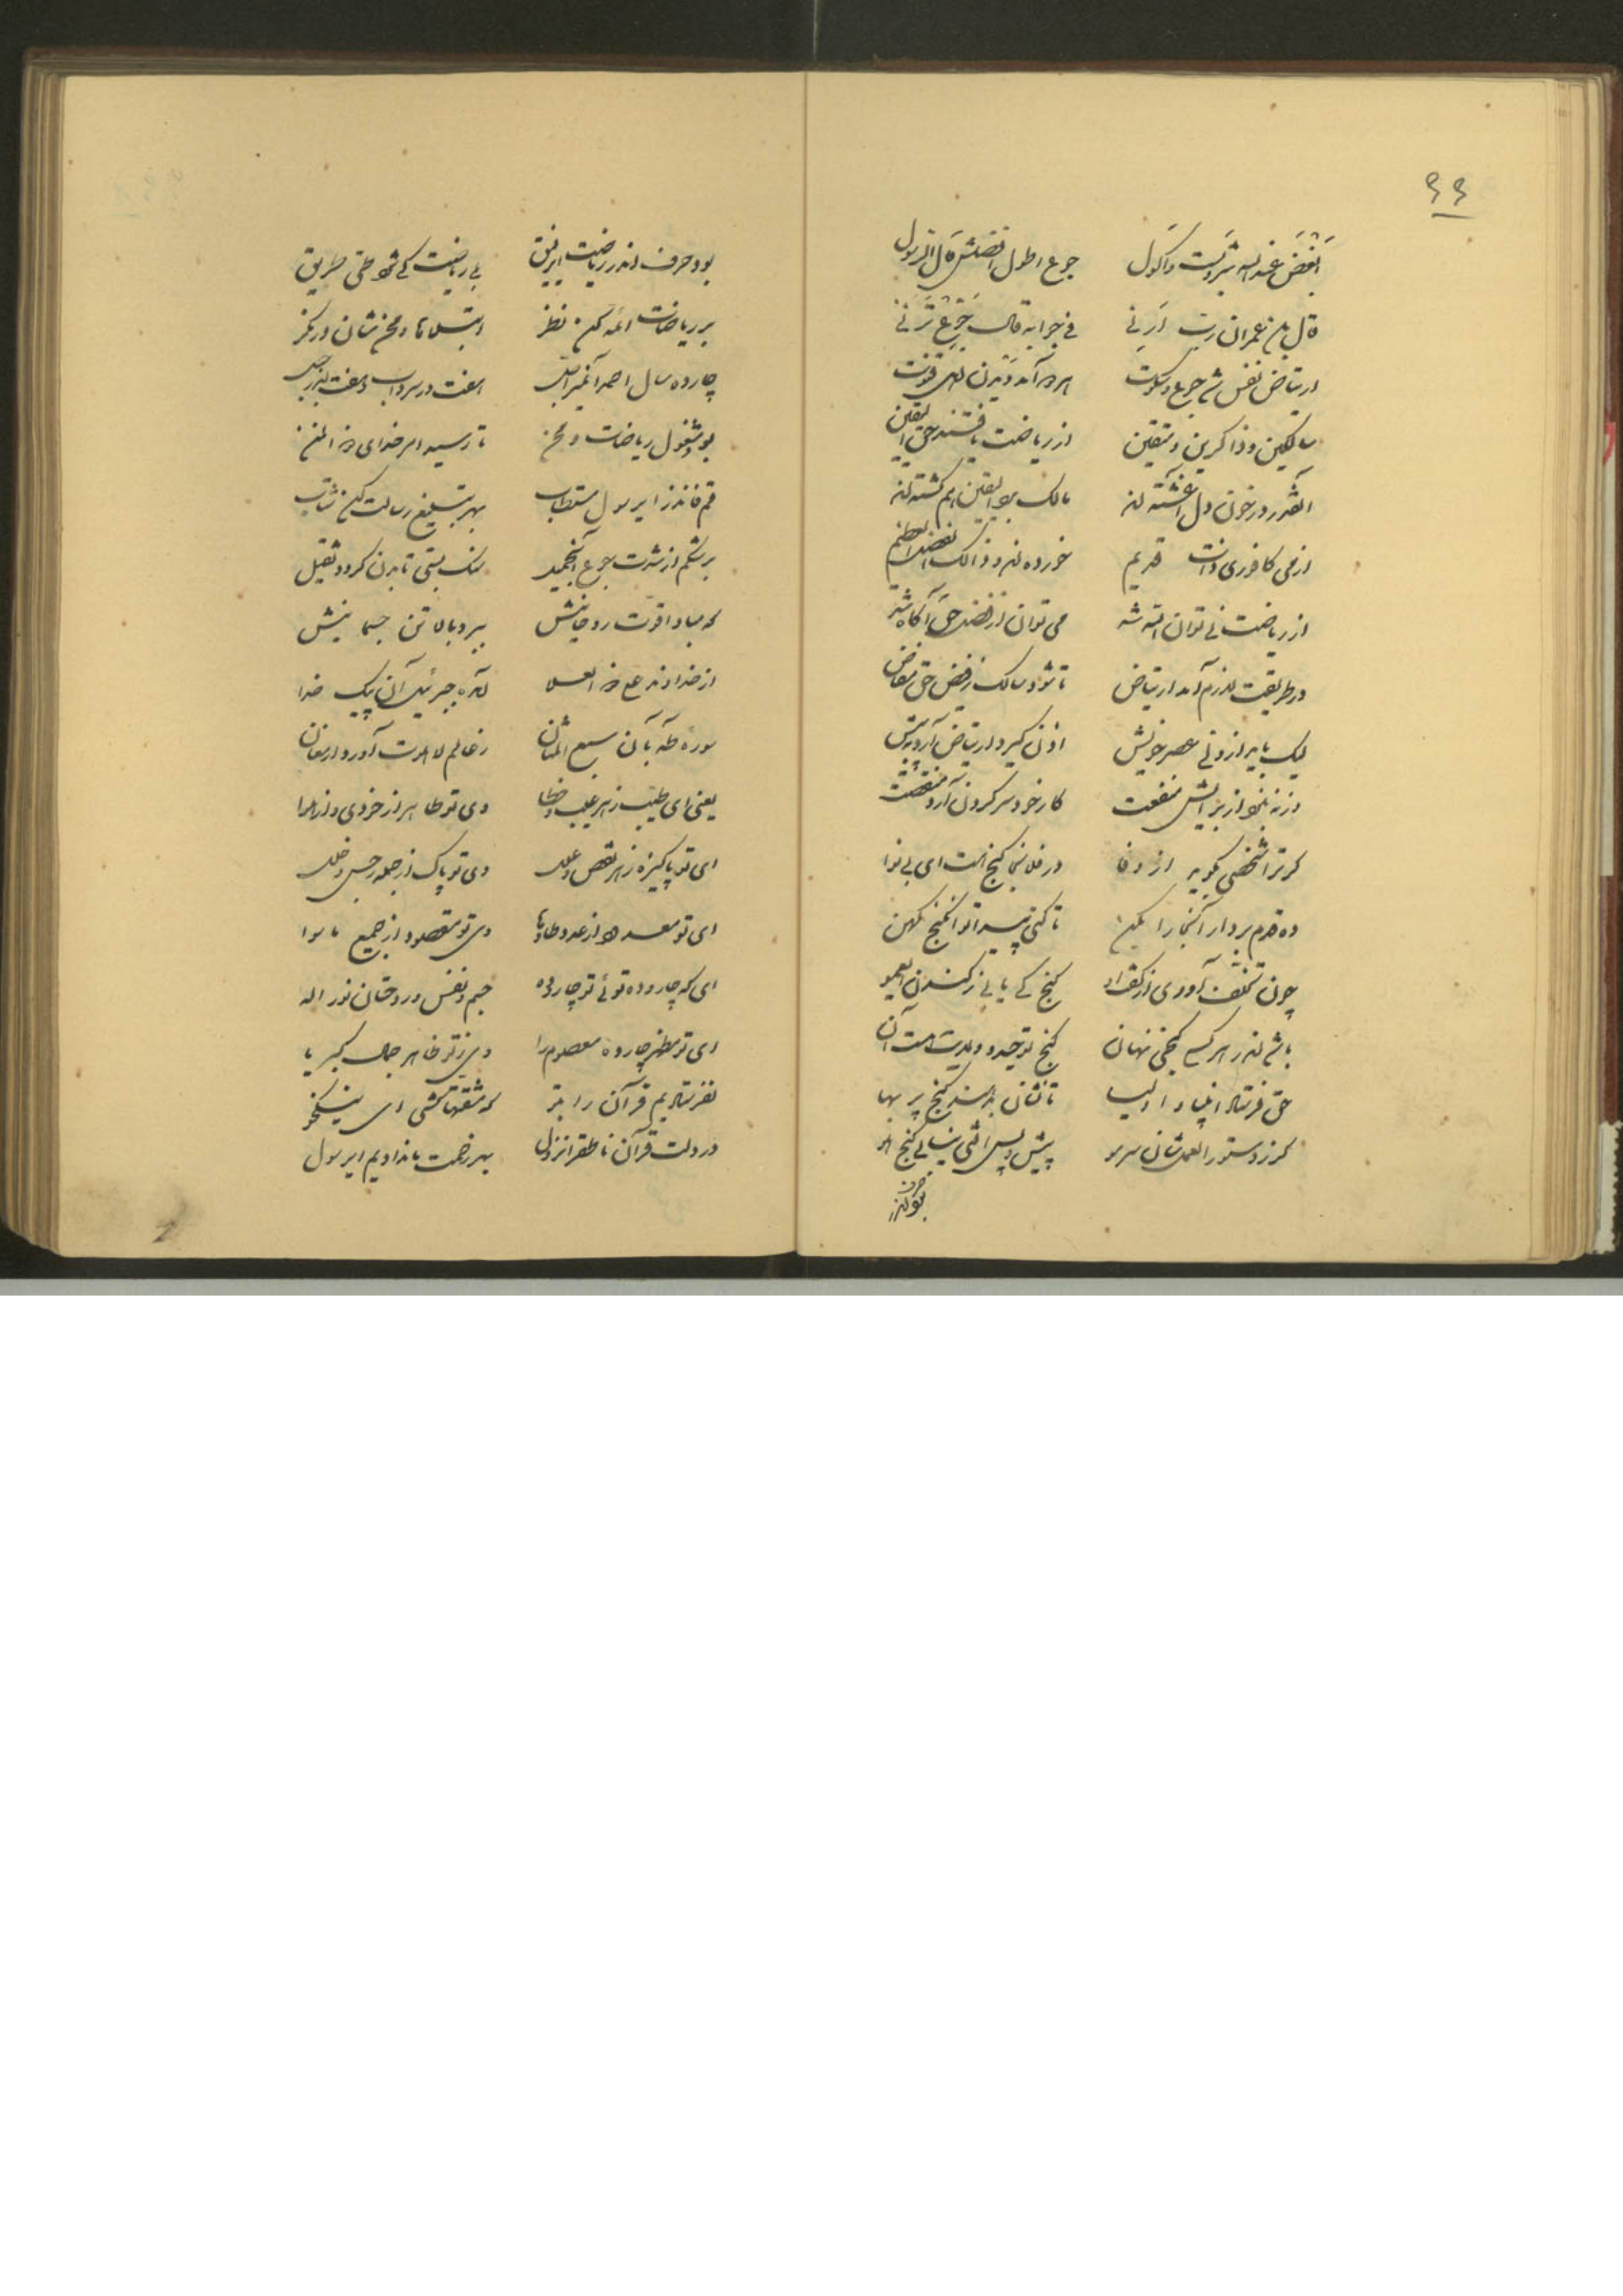 ۶۶
ابغض عند الله شروب و اکول جوع اطول افضلش قال الرسول
قال بن عمران رب ارنی فی جوابه قال جوع ترنی
ارتیاض نفس شد جوع و سکوت
سالکین و ذاکرین و متقین از ریاضت یافتند حق الیقین
آنقدر در خون دل آغشته‌اند مالک بر الیقین هم گشته‌اند
از می کافوری ذات قدیم خورده‌اند و ذالک الفضل العظیم
از ریاضت می توان الله شد می توان از فضل حق آگاه شد
در طریقت لازم آمد ارتیاض تا شود سالک ز فیض حق مفاض
لیک باید از ولی عصر خویش اذن گیرد ارتیاض آرد به پیش
ورنه نبود از برایش منفعت کار خود سر کردن آرد منقصت
گر ترا شخصی بگوید از وفا در فلان جا گنج هست ای بی نوا
ده قدم بردار آنجا را بکن تا کنی پیدا تو آن گنج کهن
چون تخلف آوردی از گفت او گنج کی یابی ز کندن ای عمو
باشد اندر هر کسی گنجی نهان گنج توحید و ولایت هست آن
حق فرستاد انبیا و اولیا تا نشان بدهند گنج پر بها
گر ز دستور العمل شان سر مو پیش و پس افتی نیابی گنج هو
بود حرف اندر ریاضت ای رفیق بی ریاضت کی شود طی طریق
بر ریاضات ائمه کن نظر ابتلاها و محن شان در نگر
چارده سال احمد
بود مشغول ریاضات و محن تا رسید امر خدای ذو المنن
قم فانذر ای رسول مستطاب بهر تبلیغ رسالت کن شتاب
بر شکم از شدت جوع سنگ بستی تا بدن گردد ثقیل
که مبادا قوت روحانیش برد بالا تن جسمانیش
از خداوند علی ذو العلا آمده جبرئیل آن پیک خدا
سوره طه به آن سبع المثان ز عالم لاهوت آورد ارمغان
یعنی ای طیب ز هر عیب و خطا وی تو طاهر از خودی و از هوا
ای تو پاکیزه ز هر نقص و علل وی تو پاک از جمله رجس و خلل
ای تو معدود از عدد طا و ها وی تو مقصود از جمیع ما سوا
ای که چارده توئی تو چارده جسم و نفس و روحتان نور اله
ای تو مظهر چارده معصوم را وی ز تو ظاهر جمال کبریا
نفرستادیم قرآن را به تو که مشقتها کشی ای نیکخو
در دلت قرآن ناطق را نزول بهر زحمت ما ندادیم ای رسول